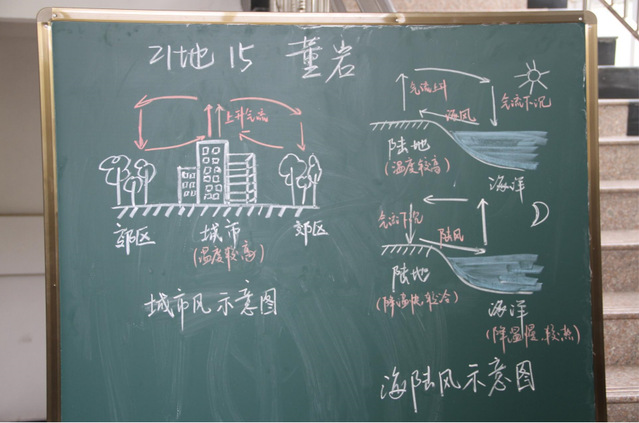 21地15 董岩
上升气流
郊区 城市 郊区
(温度较高)
城市风示意图
气流上升 海风 气流下沉
陆地
(温度较高)
海洋
气流下沉 陆风
陆地
(降温快,较冷)
海洋
(降温慢,较热)
海陆风示意图